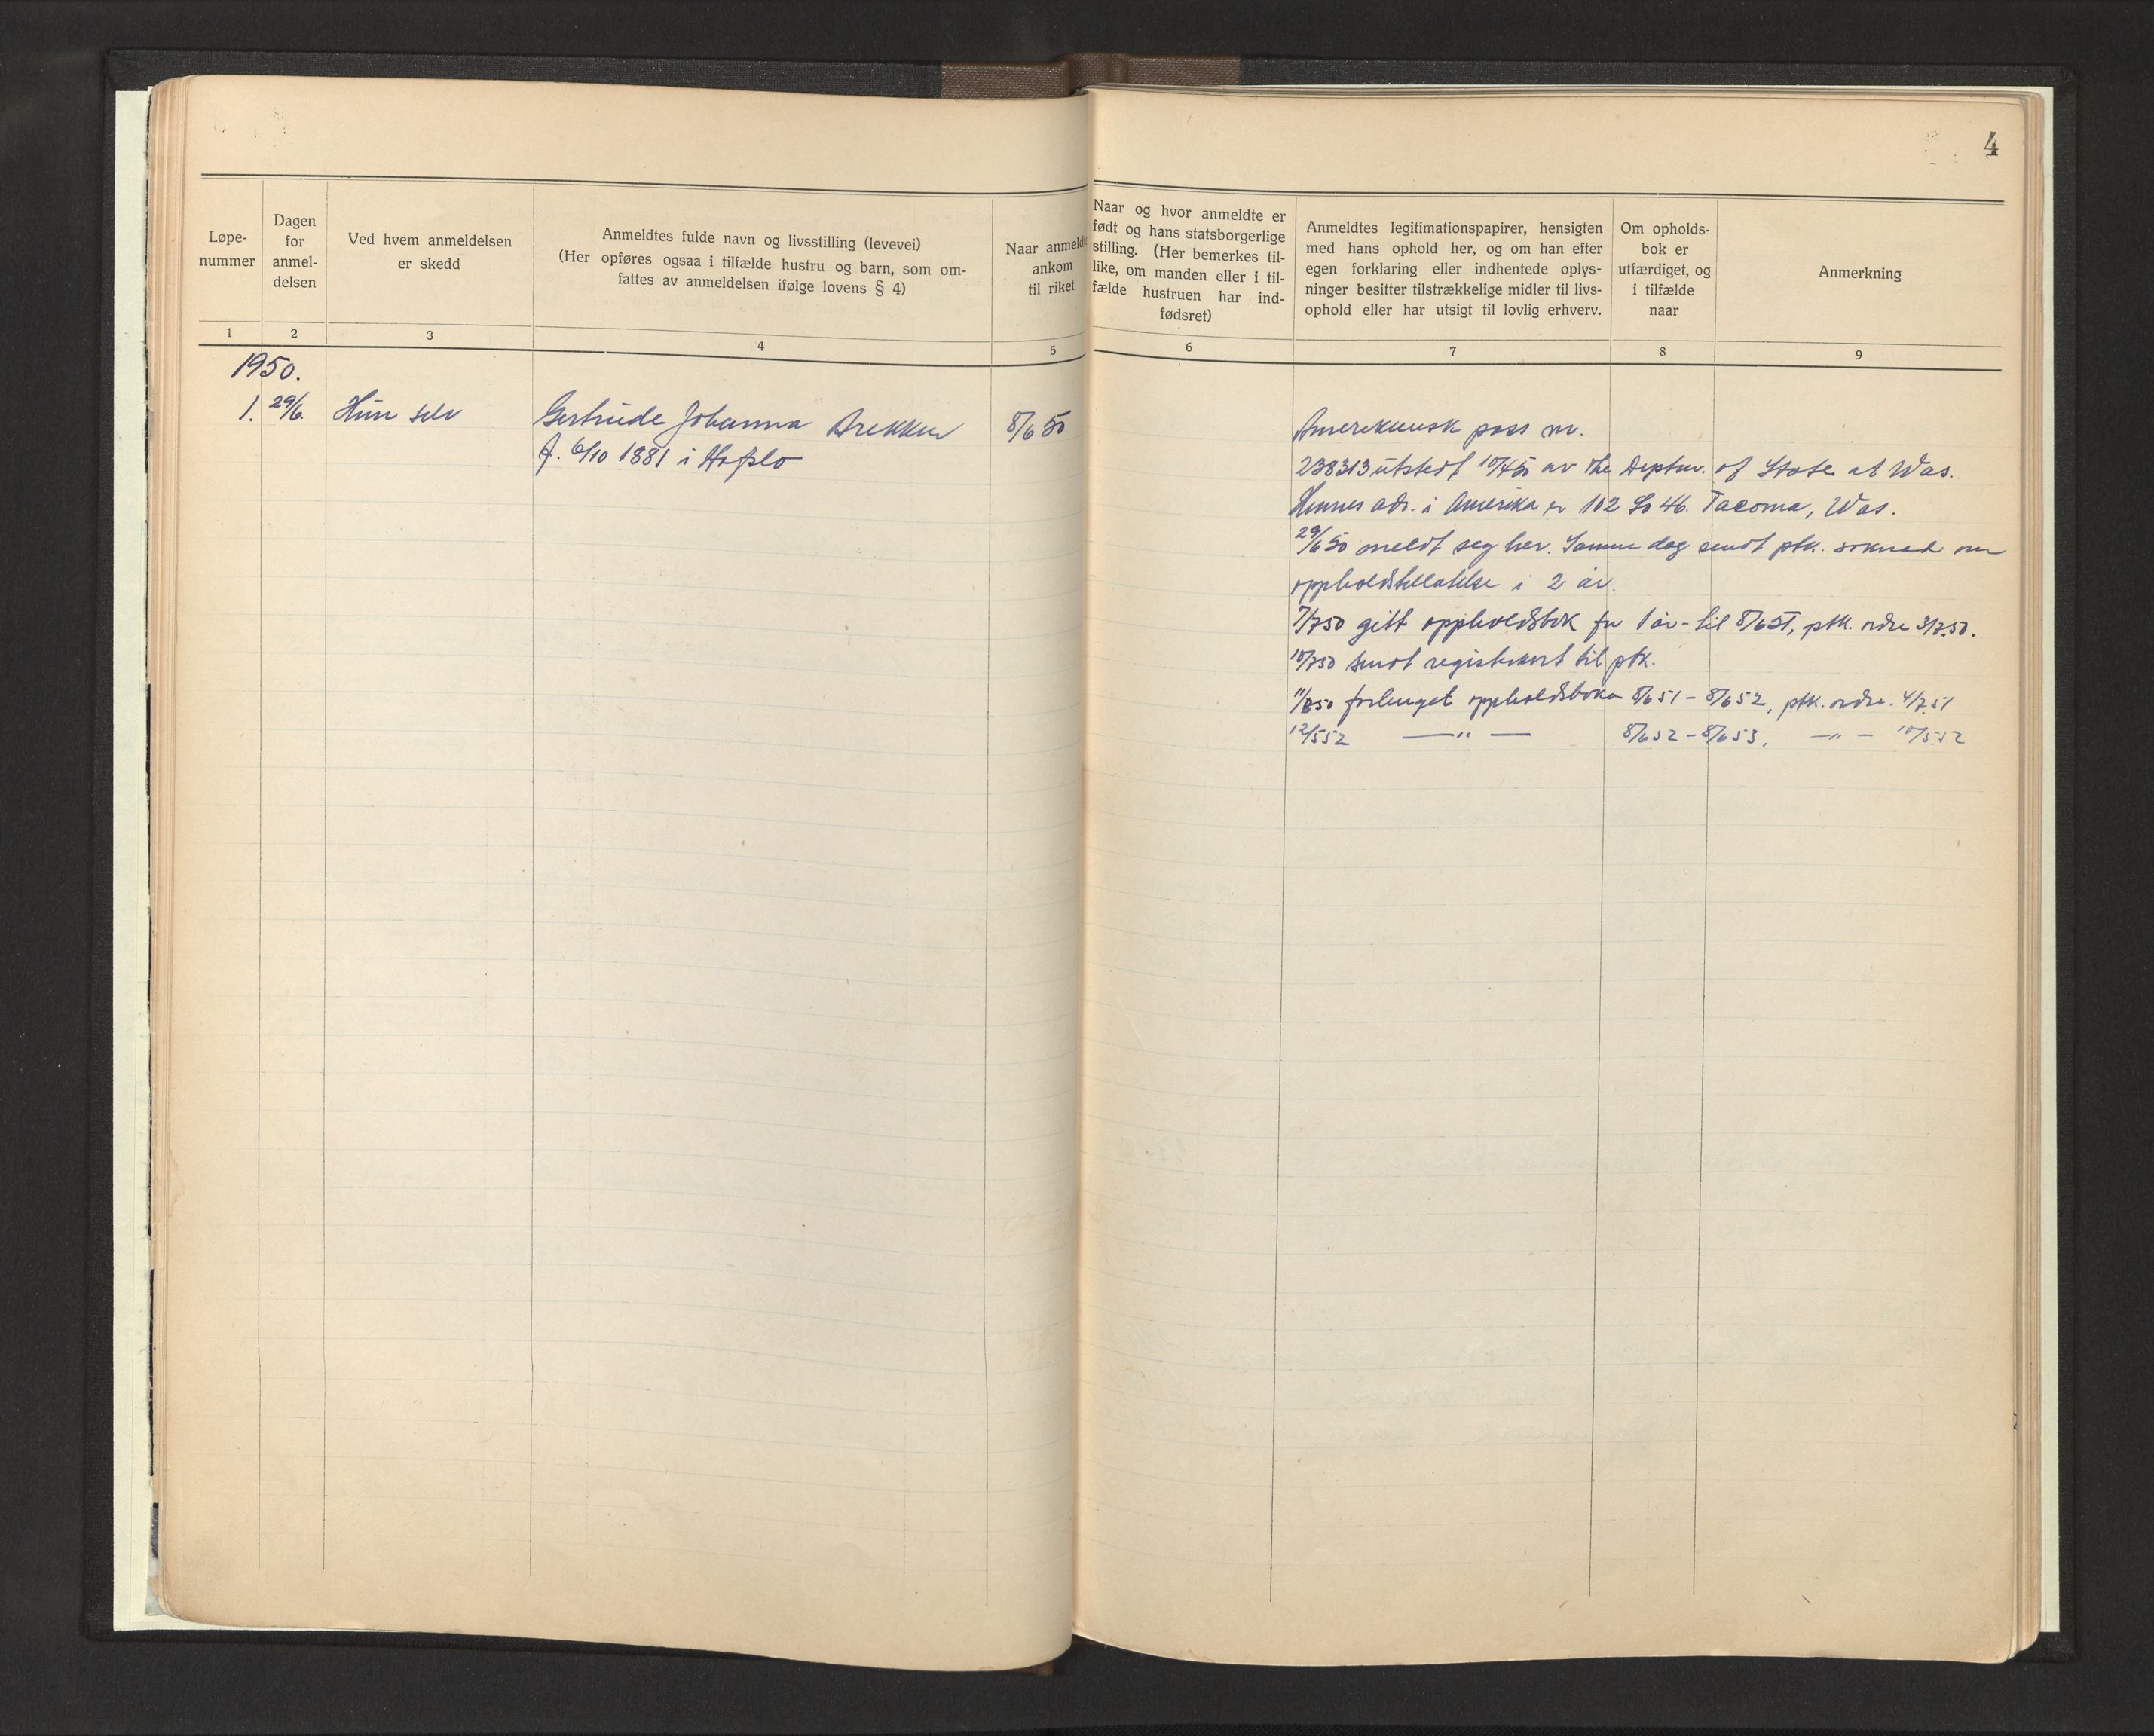 4
Løpe-
nummer
Dagen
for
anmel-
delsen
Ved hvem anmeldelsen
er skedd
Anmeldtes fulde navn og livsstilling (levevei)
(Her opføres ogsaa i tilfælde hustru og barn, som om-
fattes av anmeldelsen ifølge lovens § 4)
Naar anmeldte
ankom
til riket
Naar og hvor anmeldte er
født og hans statsborgerlige
stilling. (Her bemerkes til-
like, om manden eller i til-
fælde hustruen har ind-
fødsret)
Anmeldtes legitimationspapirer, hensigten
med hans ophold her, og om han efter
egen forklaring eller indhentede oplys-
ninger besitter tilstrækkelige midler til livs-
ophold eller har utsigt til lovlig erhverv.
Om opholds-
bok er
utfærdiget, og
i tilfælde
naar
Anmerkning
1 2 3 4 5 6 7 8 9
1950.
1. 29/6. Hun selv Gertrude Johanna Brekken 8/6 50
f. 6/10 1881 i Hafslo
Amerikansk pass nr.
238313 utstedt 10/4 50 av The Deptm. of State at Was.
Hennes adr. i Amerika er 102 So 46. Tacoma, Was.
29/6 50 meldt seg her. Samme dag sendt ptk. søknad om
oppholdstillatelse i 2 år.
7/7 50 gitt oppholdsbok for 1 år - til 8/6 51, ptk. ordre 3/7.50.
10/7 50 sendt registerkort til ptk.
11/ 50 forlenget oppholdsboka 8/6 51 - 8/6 52, ptk. ordre. 4/7.51
12/5 52 — " — 8/6 52 - 8/6 53, — " — 10/5.52